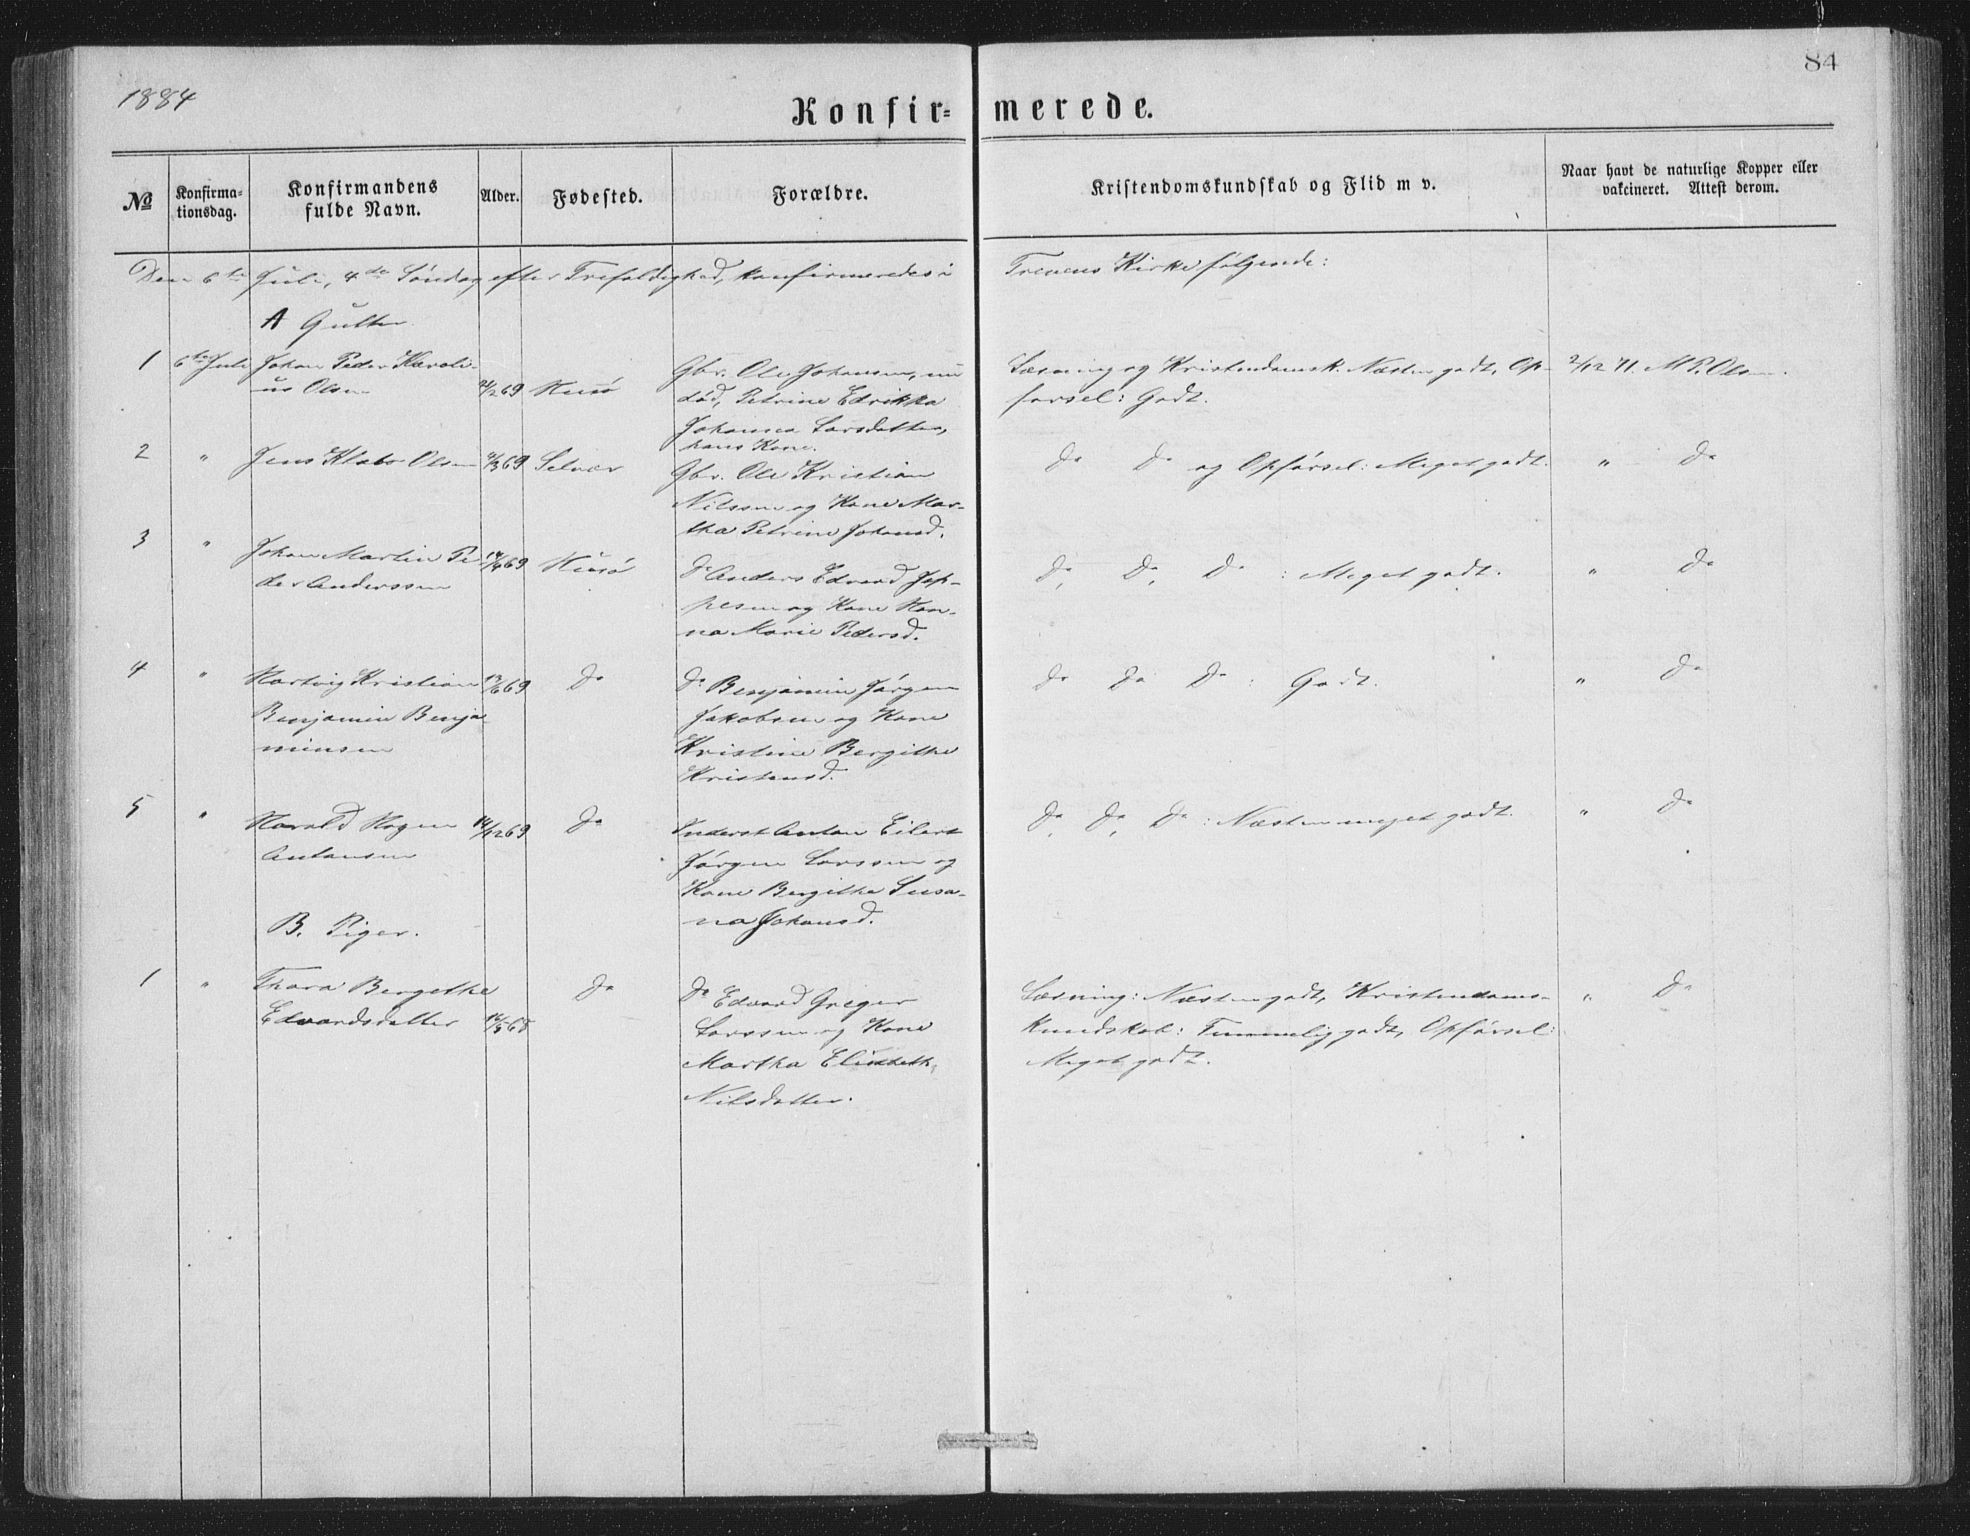 1884
84
Konfir-merede.
No
Konfirma-
tionsdag.
Konfirmandens
fulde Navn.
Alder.
Fødested.
Forældre.
Kristendomskundskab og Flid m v.
Naar havt de naturlige Kopper eller
vakcineret. Attest derom.
Den 6te Juli, 4de Søndag efter Trefoldighed, konfirmeredes i Trenens Kirke følgende:
A Gutter.
1 6te Juli Johan Peder Karoli-
us Olsen 2/2 69 Husø
Gbr. Ole Johansen, nu
død, Petrine Edrikka
Johanna Larsdatter,
hans Kone.
Læsning og Kristendomsk. Næsten godt, Op-
førsel: Godt.
2/12 71. M P. Olsen.
2 " Jens Klabo Olsen 4/3 69 Selvær
Gbr. Ole Kristian
Nilssen og Kone Mar-
tha Petrine Johansd.
Do Do og Opførsel: Meget godt. " Do
3 " Johan Martin Pe-
der Anderssen 14/4 69 Husø
Do Anders Edvard Jep-
pesen og Kone Han-
na Marie Pedersd.
Do, Do, Do : Meget godt. " Do
4 " Hartvig Kristian
Benjamin Benja-
minsen 13/6 69 Do
Do Benjamin Jørgen
Jakobsen og Kone
Kristine Bergithe
Kristensd.
Do Do Do : Godt. " Do
5 " Harald Hagen
Antonsen 14/12 69 Do
Inderst Anton Eilert
Jørgen Larssen og
Kone Bergithe Susa-
na Johansd.
Do, Do, Do : Næsten meget godt. " Do
B. Piger.
1 " Thora Bergethe
Edvardsdatter 14/5 68 Do
Do Edvard Greger
Larssen og Kone
Martha Elisabeth
Nilsdatter.
Læsning: Næsten godt, Kristendoms-
kundskab: Temmelig godt, Opførsel:
Meget godt.
" Do